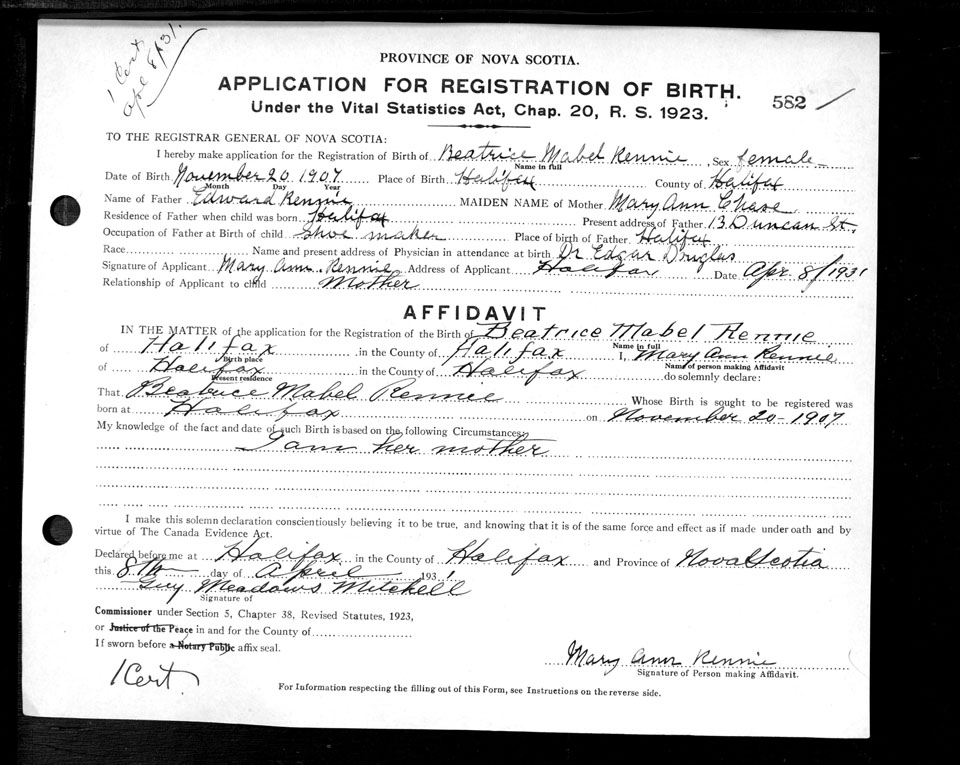 1 Cert
Apl 8/31.
PROVINCE OF NOVA SCOTIA.
APPLICATION FOR REGISTRATION OF BIRTH.
582 /
Under the Vital Statistics Act, Chap. 20, R. S. 1923.
TO THE REGISTRAR GENERAL OF NOVA SCOTIA:
I hereby make application for the Registration of Birth of Beatrice Mabel Rennie, Sex female
Name in full
Date of Birth November 20 1907 Place of Birth Halifax County of Halifax
Month Day Year
Name of Father Edward Rennie MAIDEN NAME of Mother Mary Ann Chase
Residence of Father when child was born Halifax Present address of Father 13 Duncan St.,
Occupation of Father at Birth of child Shoe maker Place of birth of Father Halifax
Race Name and present address of Physician in attendance at birth Dr Edgar Douglas
Signature of Applicant Mary Ann Rennie Address of Applicant Halifax Date Apr. 8/1931
Relationship of Applicant to child Mother
AFFIDAVIT
IN THE MATTER of the application for the Registration of the Birth of Beatrice Mabel Rennie
Name in full
of Halifax in the County of Halifax I, Mary Ann Rennie
Birth place Name of person making Affidavit
of Halifax in the County of Halifax do solemnly declare:
Present residence
That Beatrice Mabel Rennie Whose Birth is sought to be registered was
born at Halifax on November 20-1907
My knowledge of the fact and date of such Birth is based on the following Circumstances:
I am her mother
I make this solemn declaration conscientiously believing it to be true, and knowing that it is of the same force and effect as if made under oath and by
virtue of The Canada Evidence Act.
Declared before me at Halifax in the County of Halifax and Province of Nova Scotia
this 8th day of April 193
Guy Meadows Mitchell
Signature of
Commissioner under Section 5, Chapter 38, Revised Statutes, 1923,
or Justice of the Peace in and for the County of
If sworn before a Notary Public affix seal.
Mary Ann Rennie
Signature of Person making Affidavit.
1 Cert.
For Information respecting the filling out of this Form, see Instructions on the reverse side.